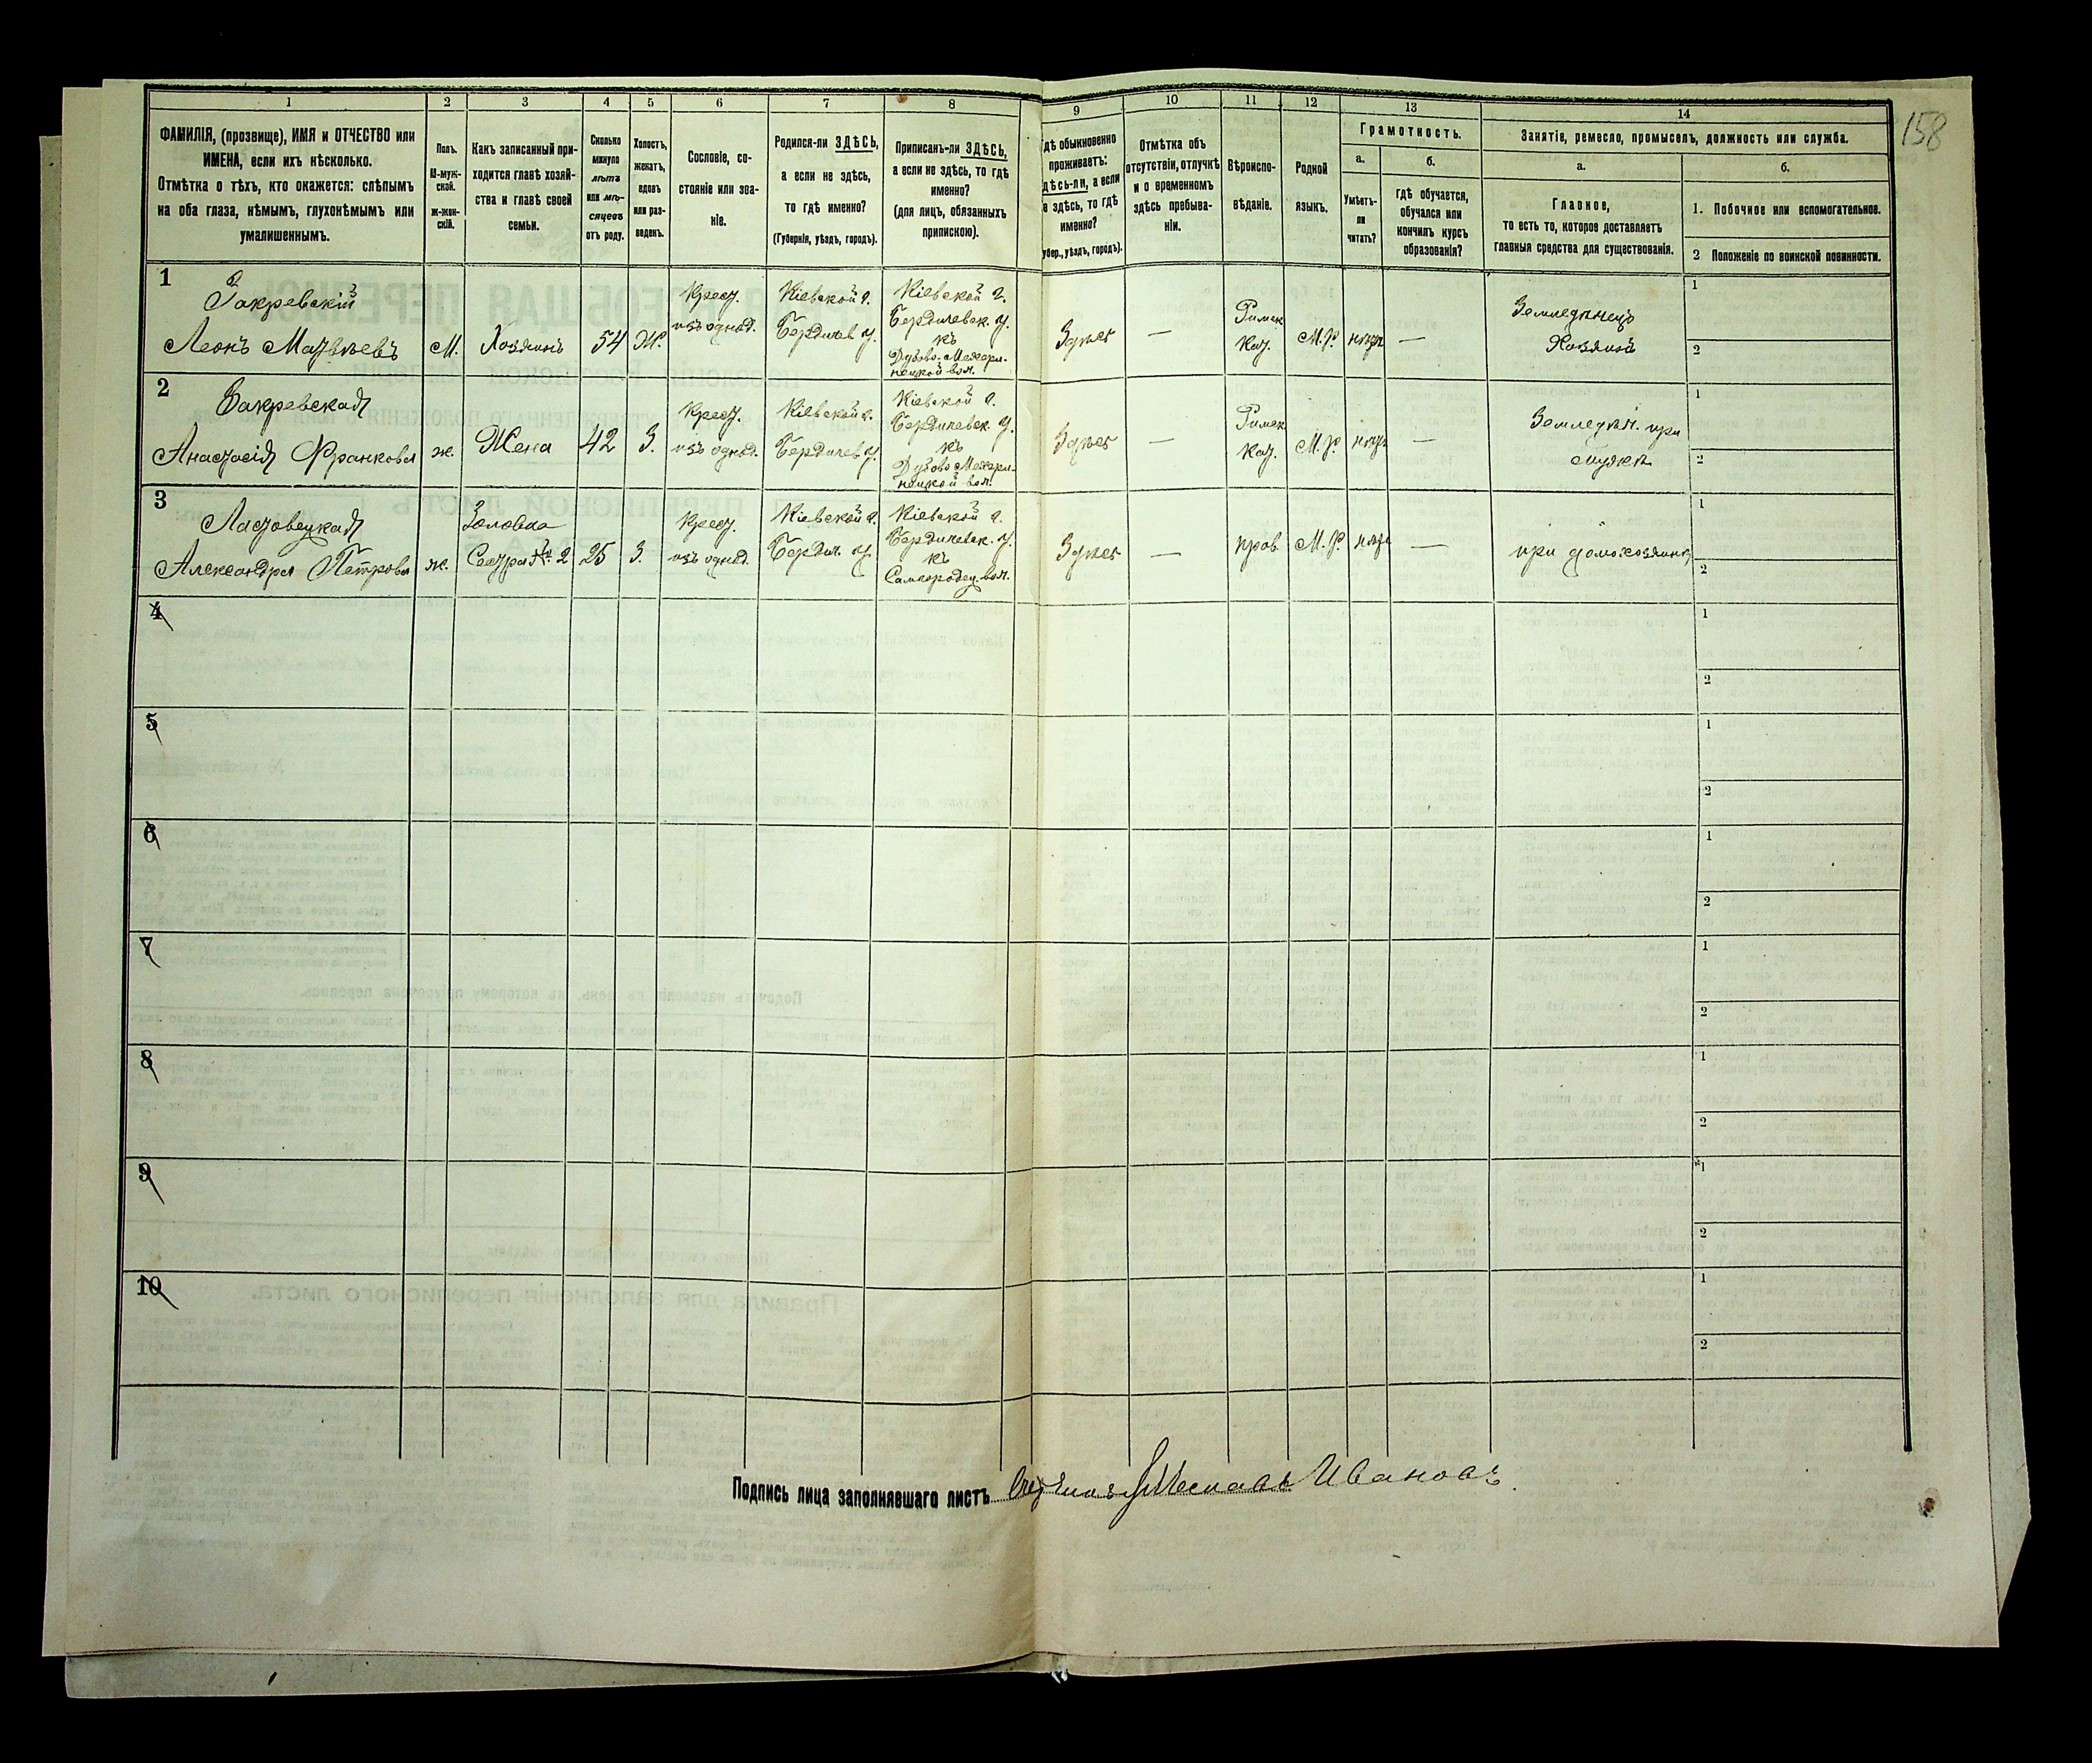 158
1 2 3 4 5 6 7 8 9 10 11 12 13 14
ФАМИЛІЯ, (прозвище), ИМЯ и ОТЧЕСТВО или
ИМЕНА, если ихъ нѣсколько.
Отмѣтка о тѣхъ, кто окажется: слѣпымъ
на оба глаза, нѣмымъ, глухонѣмымъ или
умалишеннымъ.
Полъ.
М-муж-
ской.
ж-жен-
скій.
Какъ записанный при-
ходится главѣ хозяй-
ства и главѣ своей
семьи.
Сколько
минуло
лѣтъ
или мѣ-
сяцевъ
отъ роду.
Холостъ,
женатъ,
вдовъ
или раз-
веденъ.
Сословіе, со-
стояніе или зва-
ніе.
Родился-ли ЗДѢСЬ,
а если не здѣсь,
то гдѣ именно?
(Губернія, уѣздъ, городъ).
Приписанъ-ли ЗДѢСЬ,
а если не здѣсь, то гдѣ
именно?
(для лицъ, обязанныхъ
припискою).
дѣ обыкновенно
проживаетъ:
дѣсь-ли, а если
е здѣсь, то гдѣ
именно?
убер., уѣздъ, городъ).
Отмѣтка объ
отсутствіи, отлучкѣ
и о временномъ
здѣсь пребыва-
ніи.
Вѣроиспо-
вѣданіе.
Родной
языкъ.
Грамотность.
а.
Умѣетъ-
ли
читать?
б.
гдѣ обучается,
обучался или
кончилъ курсъ
образованія?
Занятіе, ремесло, промыселъ, должность или служба.
а.
Главное,
то есть то, которое доставляетъ
главныя средства для существованія.
б.
1. Побочное или вспомогательное.
2 Положеніе по воинской повинности.
1
Закревскій
Леонъ Матвѣевъ
М.
Хозяинъ
54
Ж.
Крест.
изъ однод.
Кіевской г.
Бердичев у.
Кіевской г.
Бердичевск. у.
къ
Дубово-Махари-
нецкой вол.
Здѣсь
—
Римск
Кат.
М.Р.
нѣтъ
—
Земледѣлецъ
Хозяинъ
1
2
2
Закревская
Анастасія Франкова
ж.
Жена
42
З.
Крест.
изъ однод.
Кіевской г.
Бердичев у.
Кіевской г.
Бердичевск у.
къ
Дубово Махари-
нецкой вол.
Здѣсь
—
Римск
Кат.
М.Р.
нѣтъ
—
Земледѣл. при
мужѣ
1
2
3
Ластовецкая
Александра Петрова
ж.
Золовка
Сестра № 2
25
З.
Крест.
изъ однод.
Кіевской г.
Бердич. у.
Кіевской г.
Бердичевск. у.
къ
Самгородец. вол.
Здѣсь
—
прав.
М.Р.
нѣтъ
—
при домохозяинѣ
1
2
4
1
2
5
1
2
6
1
2
7
1
2
8
1
2
9
1
2
10
1
2
Подпись лица заполнявшаго листъ Ивановъ